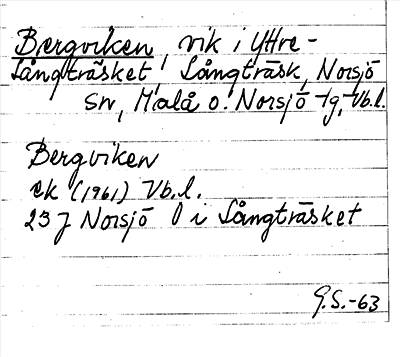 Bergviken, vik i Yttre-
Långträsket, Långträsk, Norsjö
sn, Malå o. Norsjö tg, Vb.l.
Bergviken
ek (1961) Vb.l.
23 J Norsjö i Långträsket
G.S.-63